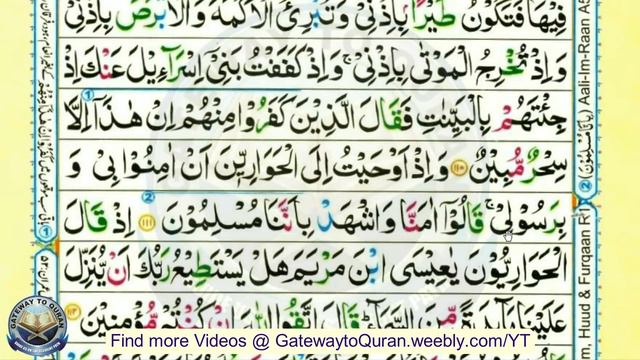 فِيْهَا فَتَكُوْنُ طَيْرًۢا بِاِذْنِيْ وَتُبْرِئُ الْاَكْمَهَ وَالْاَبْرَصَ بِاِذْنِيْ
وَاِذْ تُخْرِجُ الْمَوْتٰى بِاِذْنِيْ ۚ وَاِذْ كَفَفْتُ بَنِيْٓ اِسْرَآءِيْلَ عَنْكَ اِذْ
جِئْتَهُمْ بِالْبَيِّنٰتِ فَقَالَ الَّذِيْنَ كَفَرُوْا مِنْهُمْ اِنْ هٰذَآ اِلَّا
سِحْرٌ مُّبِيْنٌ ۝۱۱۰ وَاِذْ اَوْحَيْتُ اِلَى الْحَوَارِيّٖنَ اَنْ اٰمِنُوْا بِيْ وَ
بِرَسُوْلِيْ ۚ قَالُوْٓا اٰمَنَّا وَاشْهَدْ بِاَنَّنَا مُسْلِمُوْنَ ۝۱۱۱ اِذْ قَالَ
الْحَوَارِيُّوْنَ يٰعِيْسَى ابْنَ مَرْيَمَ هَلْ يَسْتَطِيْعُ رَبُّكَ اَنْ يُّنَزِّلَ
عَلَيْنَا مَآئِدَةً مِّنَ السَّمَآءِ ۭ قَالَ اتَّقُوا اللّٰهَ اِنْ كُنْتُمْ مُّؤْمِنِيْنَ ۝۱۱۲
Aali-Im-Raan
Huud & Furqaan
GATEWAY TO QURAN
Find more Videos @ GatewaytoQuran.weebly.com/YT